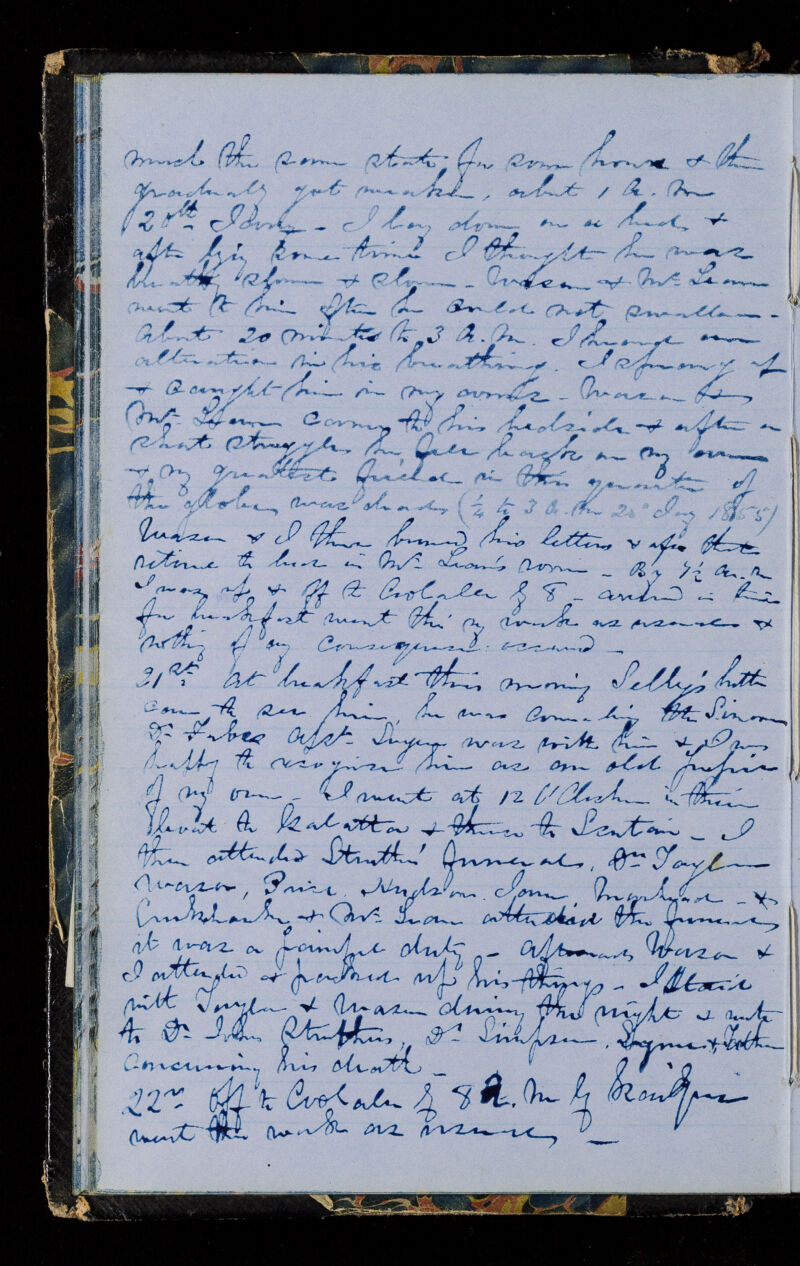 much the same state for some hours & then
gradually got weaker, about 1 A.M.
20th I lay down on a bed &
after lying some time I thought he was
breathing slower & slower - Wason & Mr. Lean
went to him often he could not swallow -
About 20 minutes to 3 A.M. I heard an
alteration in his breathing. I sprang up
& caught him in my arms - Wason &
Mr. Lean came to his bedside & after a
short struggle he fell back on my arm
& my greatest friend in this quarter of
the globe was dead (¼ to 3 A.M 20th Jany 1855)
Wason & I then burned his letters & after that
retired to bed in Mr. Lean's room - By 7½ a.m
I was up & off to Coolalee by 8 - arrived in time
for breakfast went thro' my work as usual &
nothing of any consequence occurred -
21st At breakfast this morning Selby's
came to see him, he was
Dr. Asst. Surgeon was with him & I was
happy to recognise him as an old
of my own - I went at 12 O'Clock in their
boat to Kalatta & thence to Scutari - I
then attended Struthers' funeral, Drs. Taylor
Wason, Price, Hudson, &
Cruikshank & Mr. Lean attended the funeral
it was a painful duty - afterwards Wason &
I attended & packed up his things - I staid
with Taylor & Wason during the night & wrote
to Dr. John Struthers, Dr. Simpson, &
concerning his death -
22nd Off to Coolalee by 8 A.M by
went thro' work as usual -